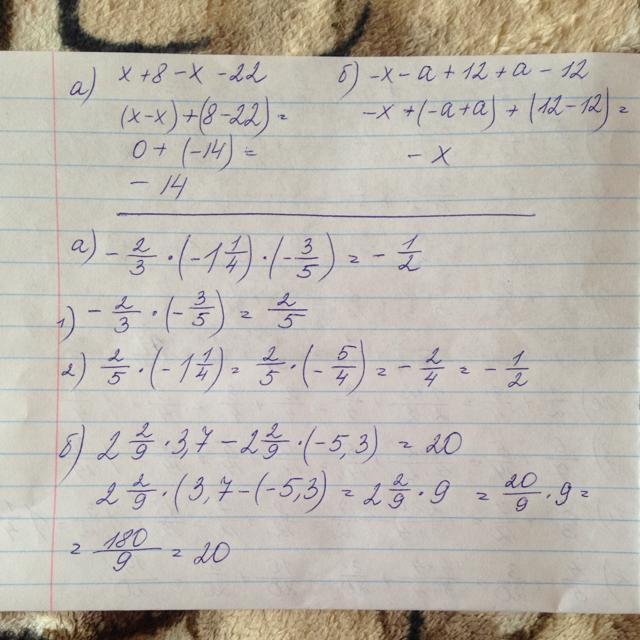 а) x+8-x-22 б) -x-a+12+a-12
(x-x)+(8-22)= -x+(-a+a)+(12-12)=
0+(-14)= -x
-14
а) -2/3·(-1 1/4)·(-3/5)=-1/2
1) -2/3·(-3/5)=2/5
2) 2/5·(-1 1/4)=2/5·(-5/4)=-2/4=-1/2
б) 2 2/9·3,7-2 2/9·(-5,3)=20
2 2/9·(3,7-(-5,3)=2 2/9·9=20/9·9=
=180/9=20